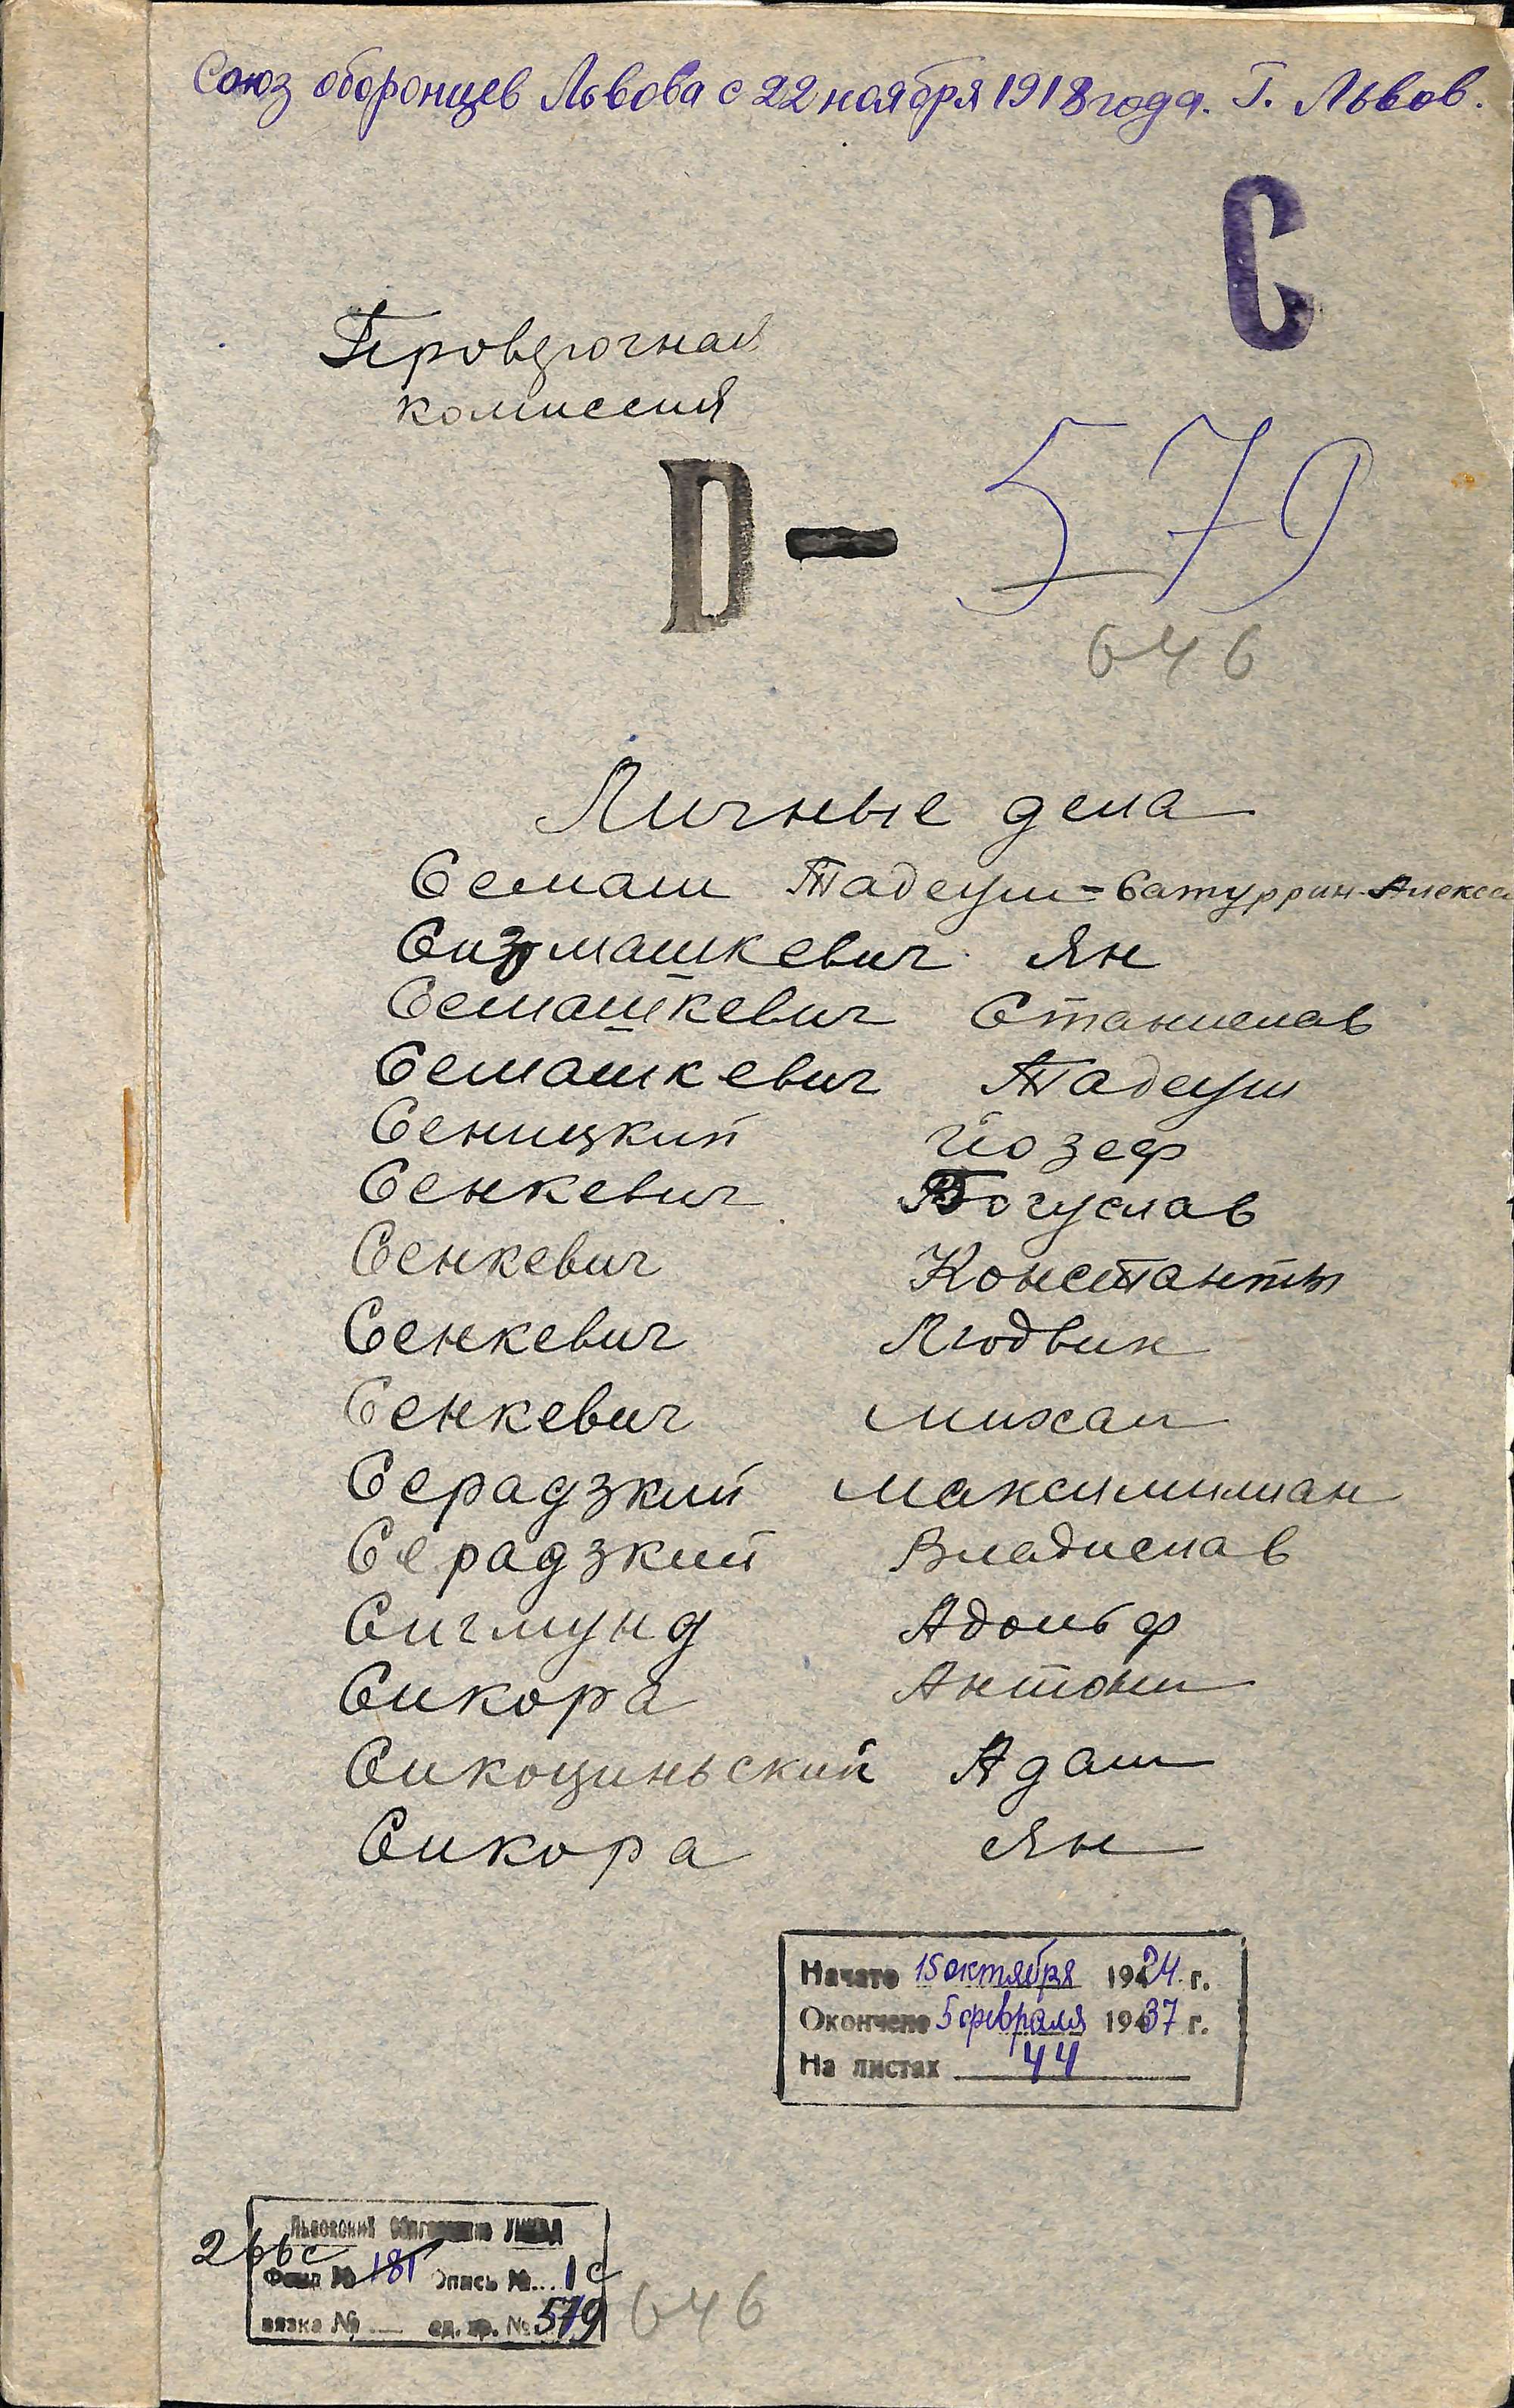 Союз оборонцев Львова с 22 ноября 1918 года. Г. Львов.
С
Проверочная
комиссия
D – 579
646
Личные дела
Семаш Тадеуш = Сатуррин-Алекса
Сизмашкевич Ян
Семашкевич Станислав
Семашкевич Тадеуш
Сеницкий Йозеф
Сенкевич Богуслав
Сенкевич Константы
Сенкевич Людвик
Сенкевич Михал
Серадзкий Максимилиан
Серадзкий Владислав
Сигмунд Адольф
Сикора Антони
Сикоциньский Адам
Сикора Ян
Начато 15 октября 1924 г.
Окончено 5 февраля 1937 г.
На листах 44
Львовский
266с
Фонд № 181 Опись № 1с
вязка № — ед. хр. № 579
646